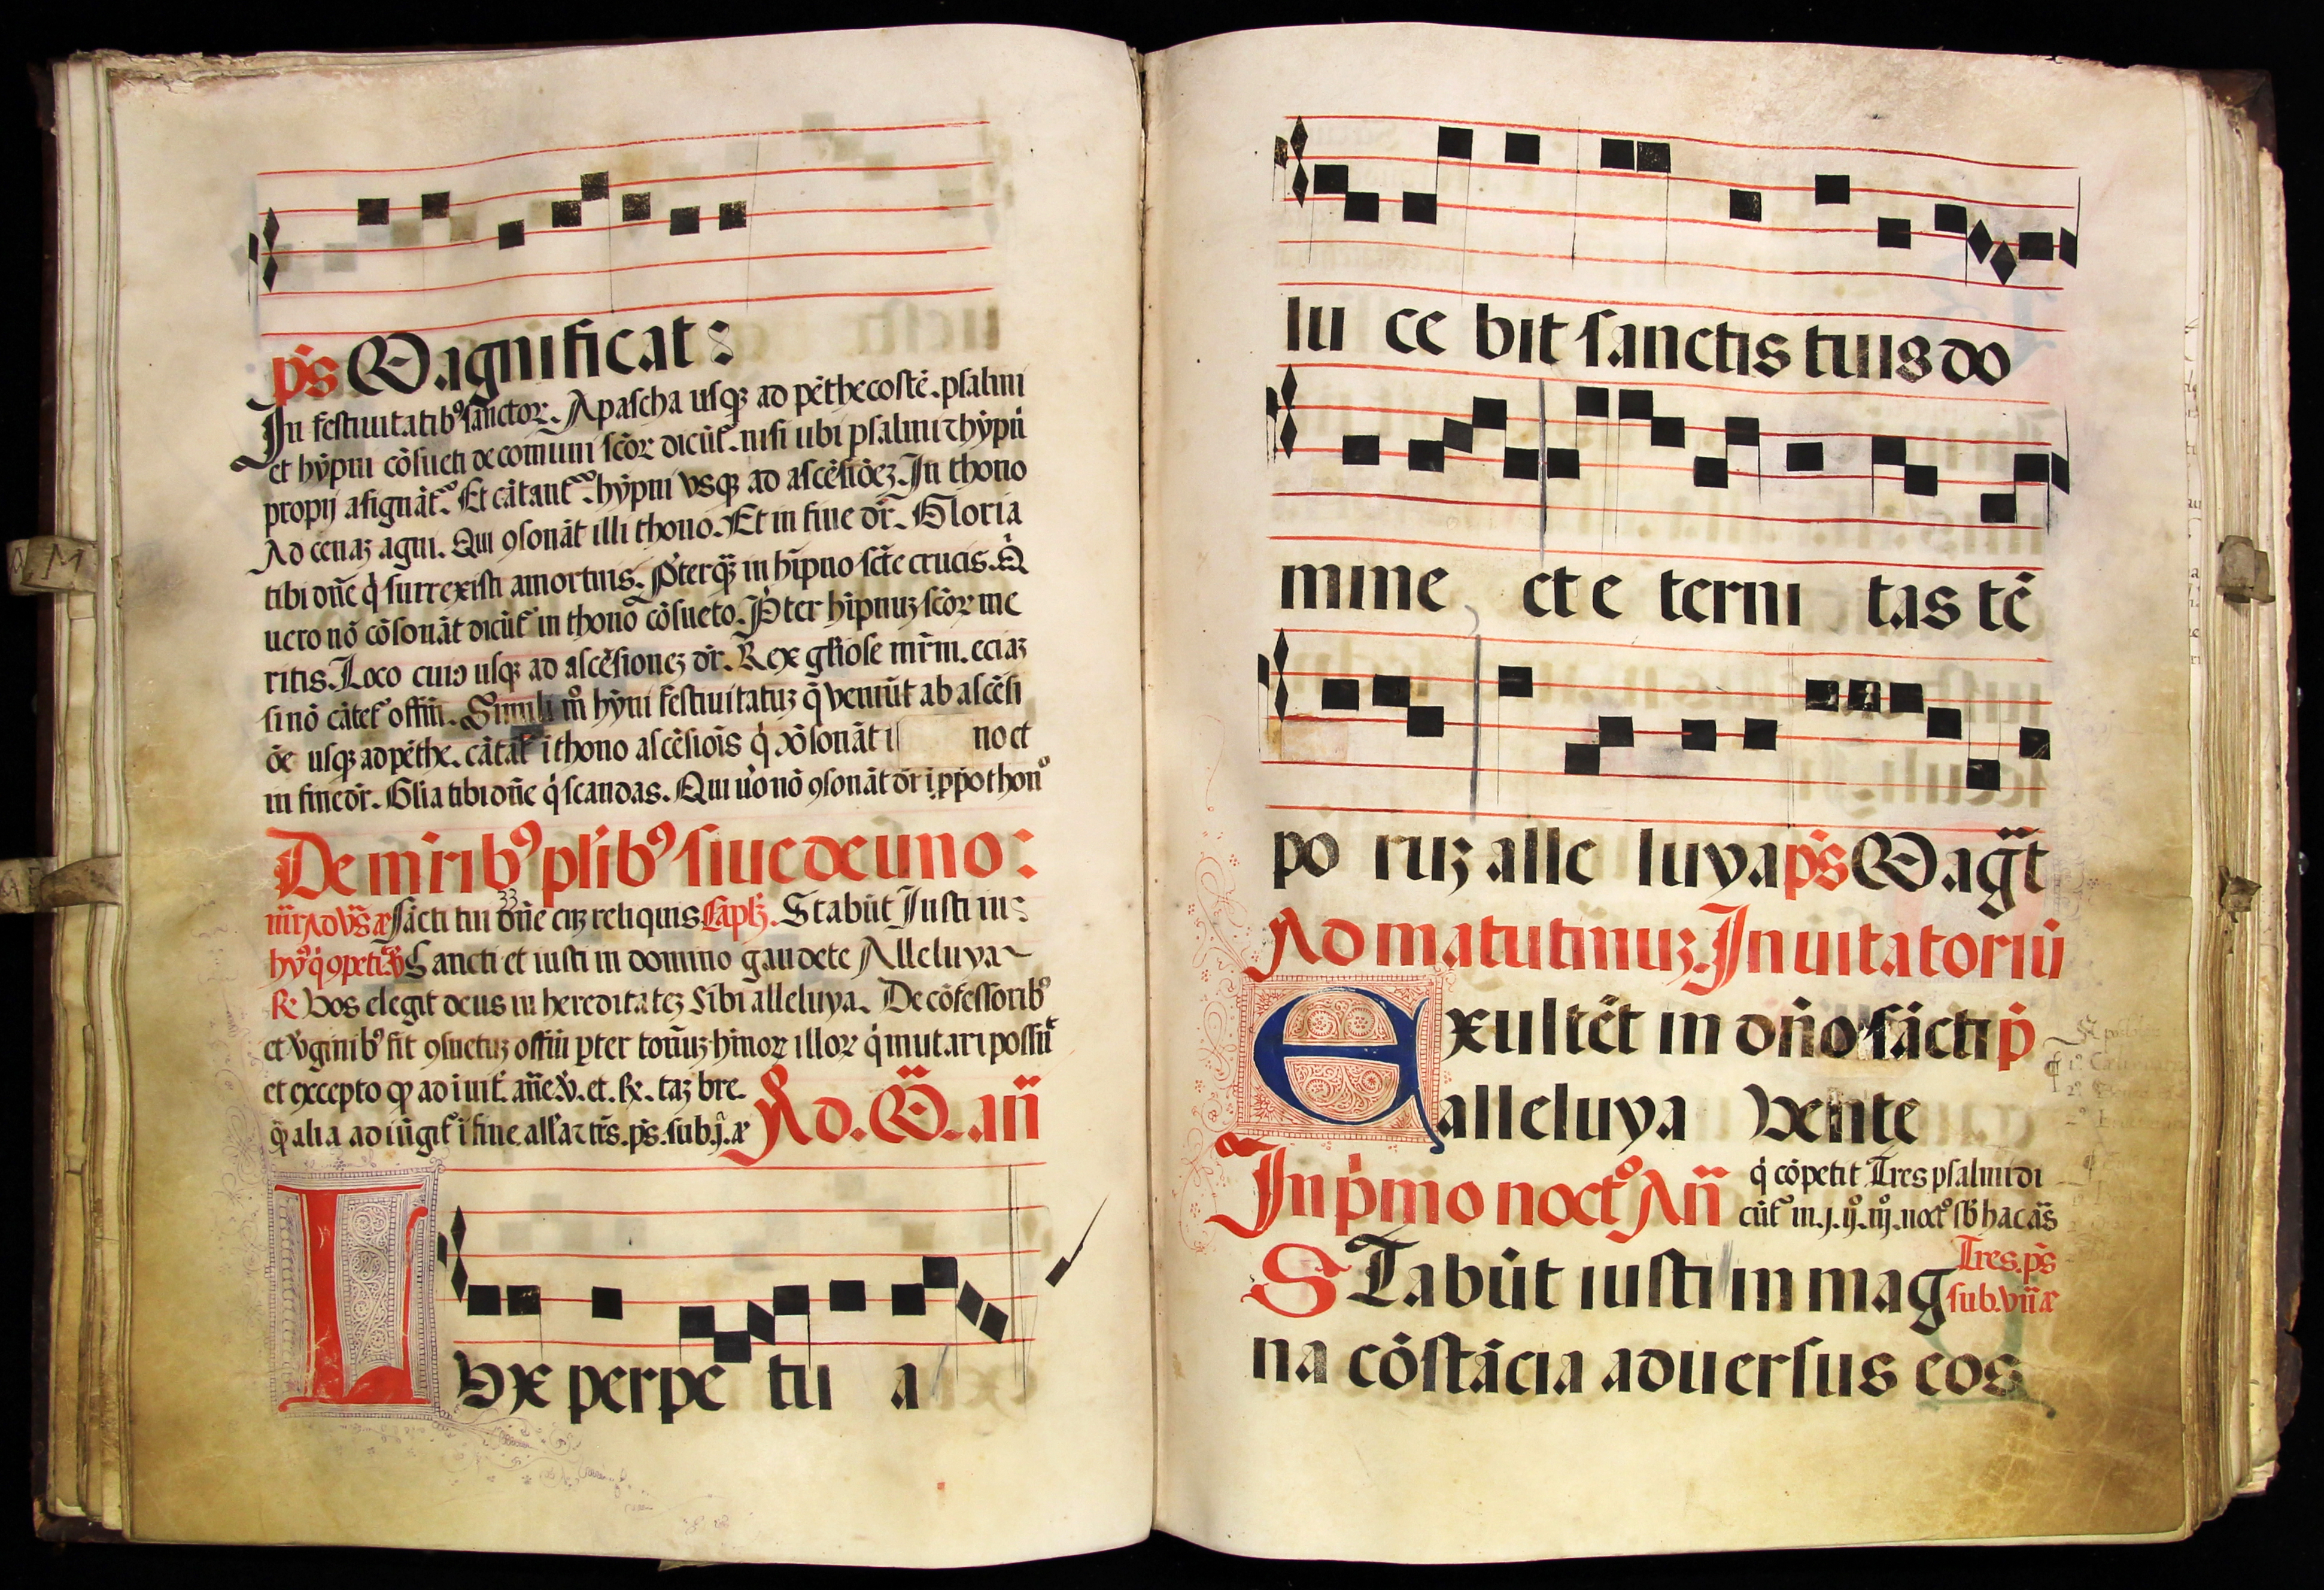 ps Magnificat:
In festiuitatib⁹ sanctor. A pascha usqꝫ ad pēthecostē. psalmi
et hȳpni cōsueti de comuni scōr dicūt̄. nisi ubi psalmi ⁊ hȳpni
propij asignāt̄. Et cātant̄ hȳpni vsqꝫ ad ascēsiōeꝫ. In thono
Ad cenaꝫ agni. Qui ꝯsonāt illi thono. Et in fine dr̄. Gloria
tibi dn̄e q̇ surrexisti amortuis. P̄terqꝫ in hīpno scte crucis. Q̇
uero nō cōsonāt dicūt̄ in thono cōsueto. P̄ter hīpnuꝫ scōꝝ me
ritis. Loco cuiꝯ usqꝫ ad ascēsioneꝫ dr̄. Rex gl̄iose mr̄m. eciaꝫ
si nō cātet̄ offm̄. Simili m̊ hȳni festiuitatuꝫ q̄ veniūt ab ascēsi
ōe usqꝫ ad pēthe. cātāt̄ ī thono ascēsiōis q̇ ꝯsonāt i noct
in fine dr̄. Gl̄ia tibi dn̄e q̇ scandas. Qui ůo nō ꝯsonāt dr̄ ī ꝓp̄o thon̊
De mr̄ib⁹ pl̄ib⁹ siue de uno:
Sācti tui dn̄e cuꝫ reliquis Capl̄ꝫ. Stabūt Iusti iu:
hȳ⁹ q̇ ꝯpetit. v̄ Sancti et iusti in domino gaudete Alleluya
℟ Vos elegit deus in hereditateꝫ sibi alleluya. De cōfessorib⁹
et v̇ginib⁹ fit ꝯsuetuꝫ offiū p̄ter tonuꝫ hīnoꝝ illoꝝ q̇ mutari possūt
et excepto ꝙ ad inuit̄. an̄e. v̄. et. ℟. taꝫ bre.
q̄ alia adiūgit̄ ī fine all'a ⁊ tr̄s. ps̄. sub. j. ā Ad. M. an̄
LVx perpe tu a
lu ce bit sanctis tuis do
mine et e terni tas tē
po ruꝫ alle luya ps̄ Mag̅t
Ad matutinuꝫ. Inuitatoriū
Exultēt in dn̄o sācti p̄
alleluya Venite
In p̄mo noct̊ An̄ q̇ cōpetit Tres psalmi di
cūt̄ in. j. ij̊. iij̊. noct̊ sb̄ hac ās̄
STabūt iusti in mag Tres. ps̄
sub. vn̄ ā
na cōstācia aduersus eos